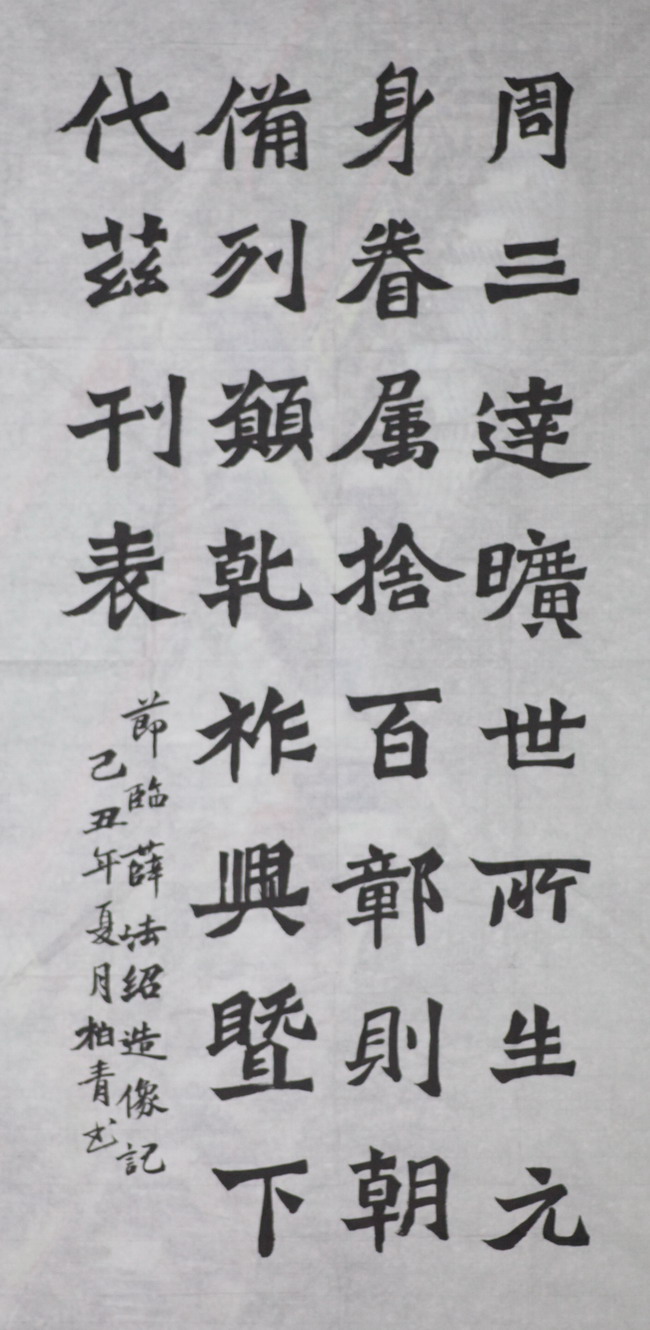 周三達曠世所生元
身眷属捨百鄣則朝
備列顛乾祚興暨下
代茲刊表
節臨薛法紹造像記
己丑年夏月柏青书